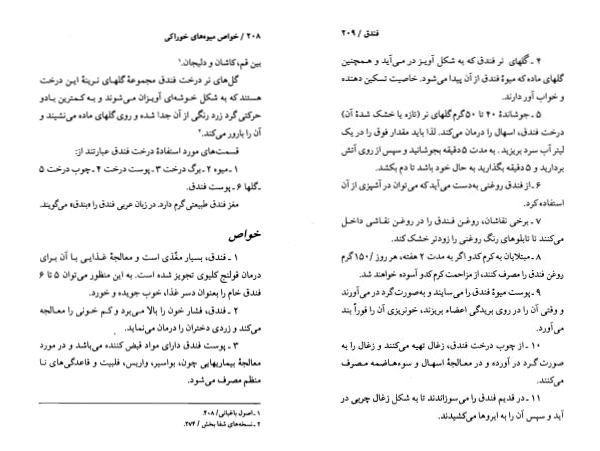 ۲۰۸ / خواص میوه‌های خوراکی
بین قم، کاشان و دلیجان.۱
گل‌های نر درخت فندق مجموعهٔ گلهای نرینهٔ این درخت
هستند که به شکل خوشه‌ای آویزان می‌شوند و به کمترین بادو
حرکتی گرد زرد رنگی از آن جدا شده و روی گلهای ماده می‌نشیند و
آن را بارور می‌کند.۲
قسمت‌های مورد استفادهٔ درخت فندق عبارتند از:
۱ ـ میوه ۲ ـ برگ درخت ۳ ـ پوست درخت ۴ ـ چوب درخت ۵
ـ گلها ۶ ـ پوست فندق.
مغز فندق طبیعتی گرم دارد. در زبان عربی فندق را «بندق» می‌گویند.
خواص
۱ ـ فندق، بسیار مغذّی است و معالجهٔ غذایی با آن برای
درمان قولنج کلیوی تجویز شده است. به این منظور می‌توان ۵ تا ۶
فندق خام را بعنوان دسر غذا، خوب جویده و خورد.
۲ ـ فندق، فشار خون را بالا می‌برد و کم خونی را معالجه
می‌کند و زردی دختران را درمان می‌نماید.
۳ ـ پوست فندق دارای مواد قبض کننده می‌باشد و در مورد
معالجهٔ بیماریهایی چون، بواسیر، واریس، فلبیت و قاعدگی‌های نا
منظم مصرف می‌شود.
۱ ـ اصول باغبانی / ۲۰۸.
۲ ـ نسخه‌های شفا بخش / ۲۷۴.
فندق / ۲۰۹
۴ ـ گلهای نر فندق که به شکل آویز در می‌آید و همچنین
گلهای ماده که میوهٔ فندق از آن پیدا می‌شود. خاصیت تسکین دهنده
و خواب آور دارند.
۵ ـ جوشاندهٔ ۴۰ تا ۵۰ گرم گلهای نر (تازه یا خشک شدهٔ آن)
درخت فندق، اسهال را درمان می‌کند. لذا باید مقدار فوق را در یک
لیتر آب سرد بریزید. به مدت ۵ دقیقه بجوشانید و سپس از روی آتش
بردارید و ۵ دقیقه بگذارید به حال خود باشد تا دم بکشد.
۶ ـ از فندق روغنی به‌دست می‌آید که می‌توان در آشپزی از آن
استفاده کرد.
۷ ـ برخی نقاشان، روغن فندق را در روغن نقاشی داخل
می‌کنند تا تابلوهای رنگ روغنی را زودتر خشک کند.
۸ ـ مبتلایان به کرم کدو اگر به مدت ۲ هفته، هر روز /۱۵۰ گرم
روغن فندق را مصرف کنند، از مزاحمت کرم کدو آسوده خواهند شد.
۹ ـ پوست میوهٔ فندق را می‌سایند و به‌صورت گرد در می‌آورند
و وقتی آن را در روی بریدگی اعضاء بریزند، خونریزی آن را فوراً بند
می‌آورد.
۱۰ ـ از چوب درخت فندق، زغال تهیه می‌کنند و زغال را به
صورت گرد در آورده و در معالجهٔ اسهال و سوءهاضمه مصرف
می‌کنند.
۱۱ ـ در قدیم فندق را می‌سوزاندند تا به شکل زغال چربی در
آید و سپس آن را به ابروها می‌کشیدند.